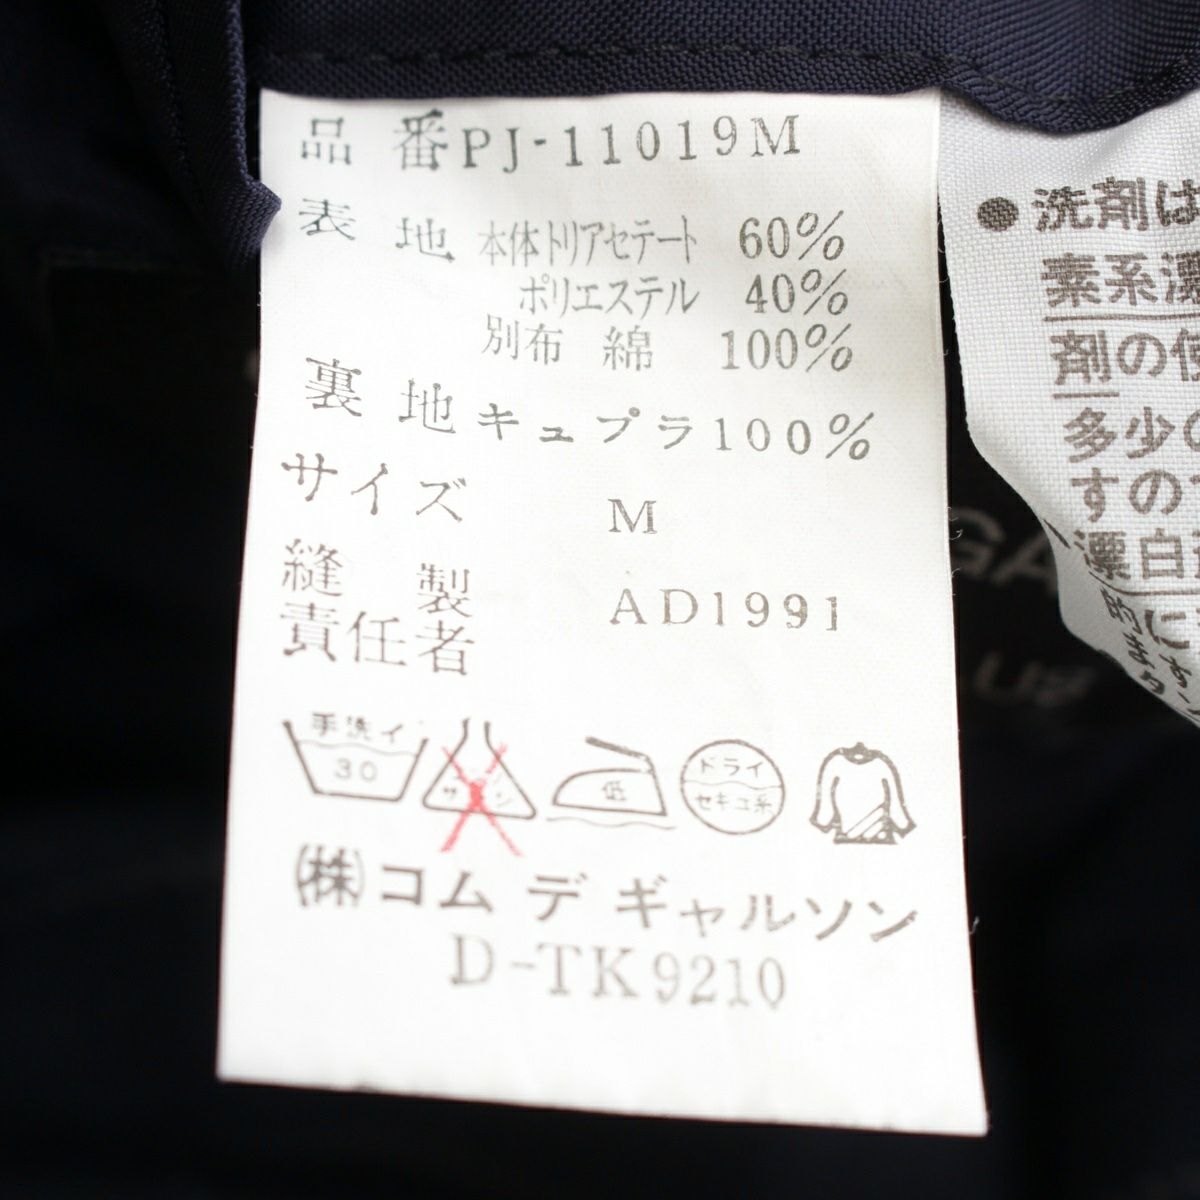 品 番 PJ-11019M
表 地 本体トリアセテート 60%
ポリエステル 40%
別布 綿 100%
裏 地 キュプラ 100%
サイズ M
縫 製
責任者 AD1991
手洗イ
30
サラシ
低
ドライ
セキユ系
㈱コム デ ギャルソン
D-TK9210
● 洗剤は
素系漂
剤の使
多少の
すので
漂白
GA